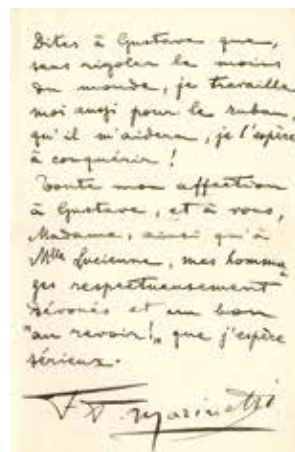 Dites à Gustave que,
sans rigoler le moins
du monde, je travaille
moi aussi pour le ruban,
qu'il m'aidera, je l'espère
à conquérir !
Toute mon affection
à Gustave, et à vous,
Madame, ainsi qu'à
Mlle Lucienne, mes homma
ges respectueusement
dévoués et un bon
"au revoir!" que j'espère
sérieux.
F. T. Marinetti